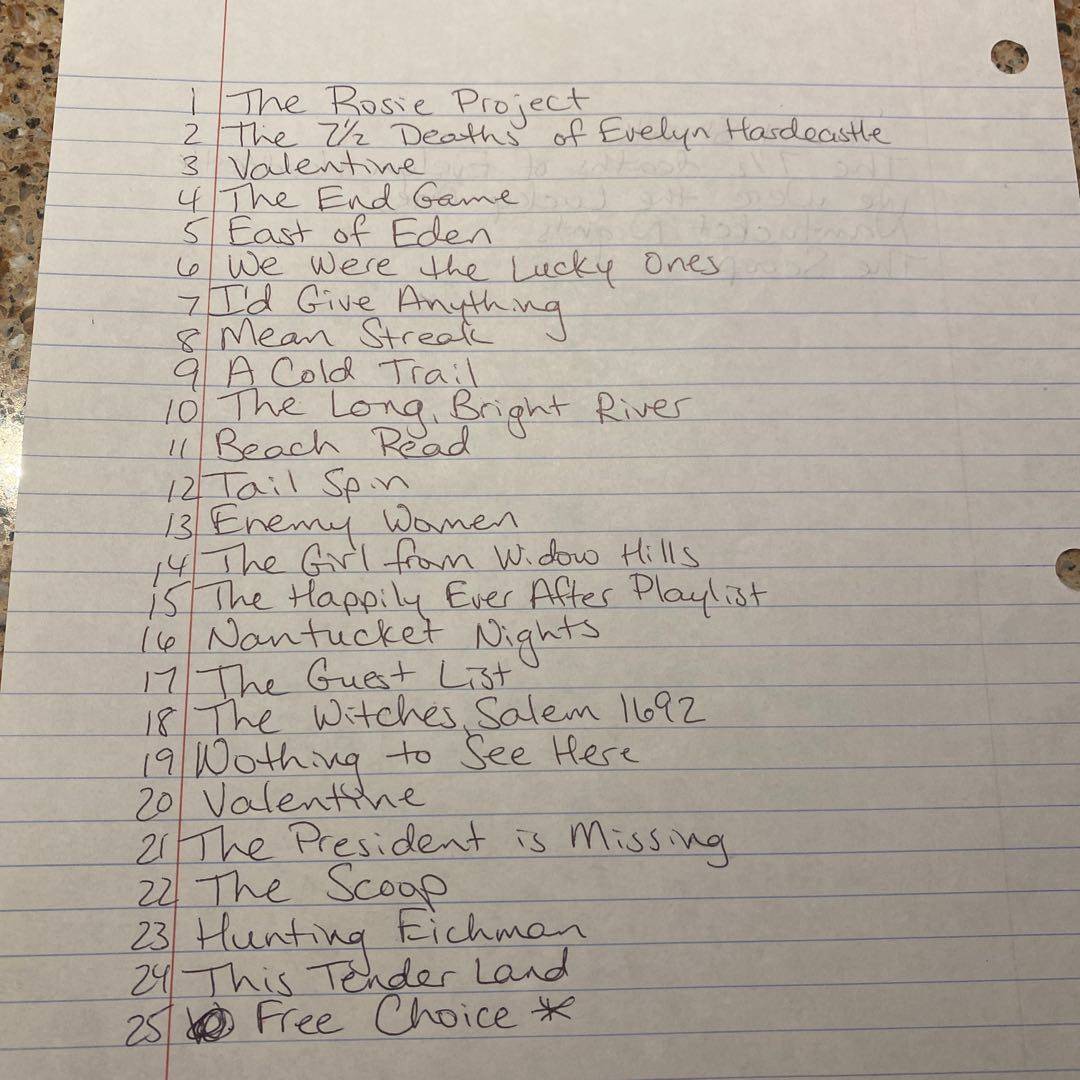 1 The Rosie Project
2 The 7½ Deaths of Evelyn Hardcastle
3 Valentine
4 The End Game
5 East of Eden
6 We Were the Lucky Ones
7 I'd Give Anything
8 Mean Streak
9 A Cold Trail
10 The Long, Bright River
11 Beach Read
12 Tail Spin
13 Enemy Women
14 The Girl from Widow Hills
15 The Happily Ever After Playlist
16 Nantucket Nights
17 The Guest List
18 The Witches, Salem 1692
19 Nothing to See Here
20 Valentine
21 The President is Missing
22 The Scoop
23 Hunting Eichman
24 This Tender Land
25 Free Choice *